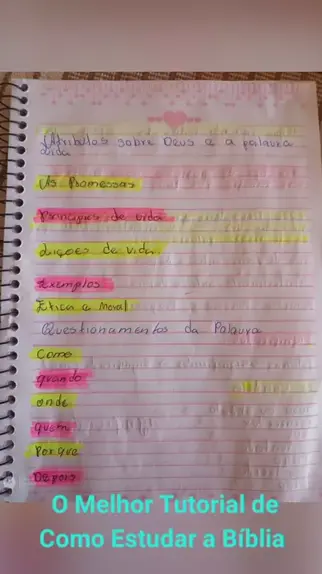 Atributos sobre Deus e a palavra
vida
As Promessas
Principios de vida
Lições de vida.
Exemplos
Ética e Moral
Questionamentos da Palavra
Como
quando
onde
quem
Por que
Depois
O Melhor Tutorial de
Como Estudar a Bíblia